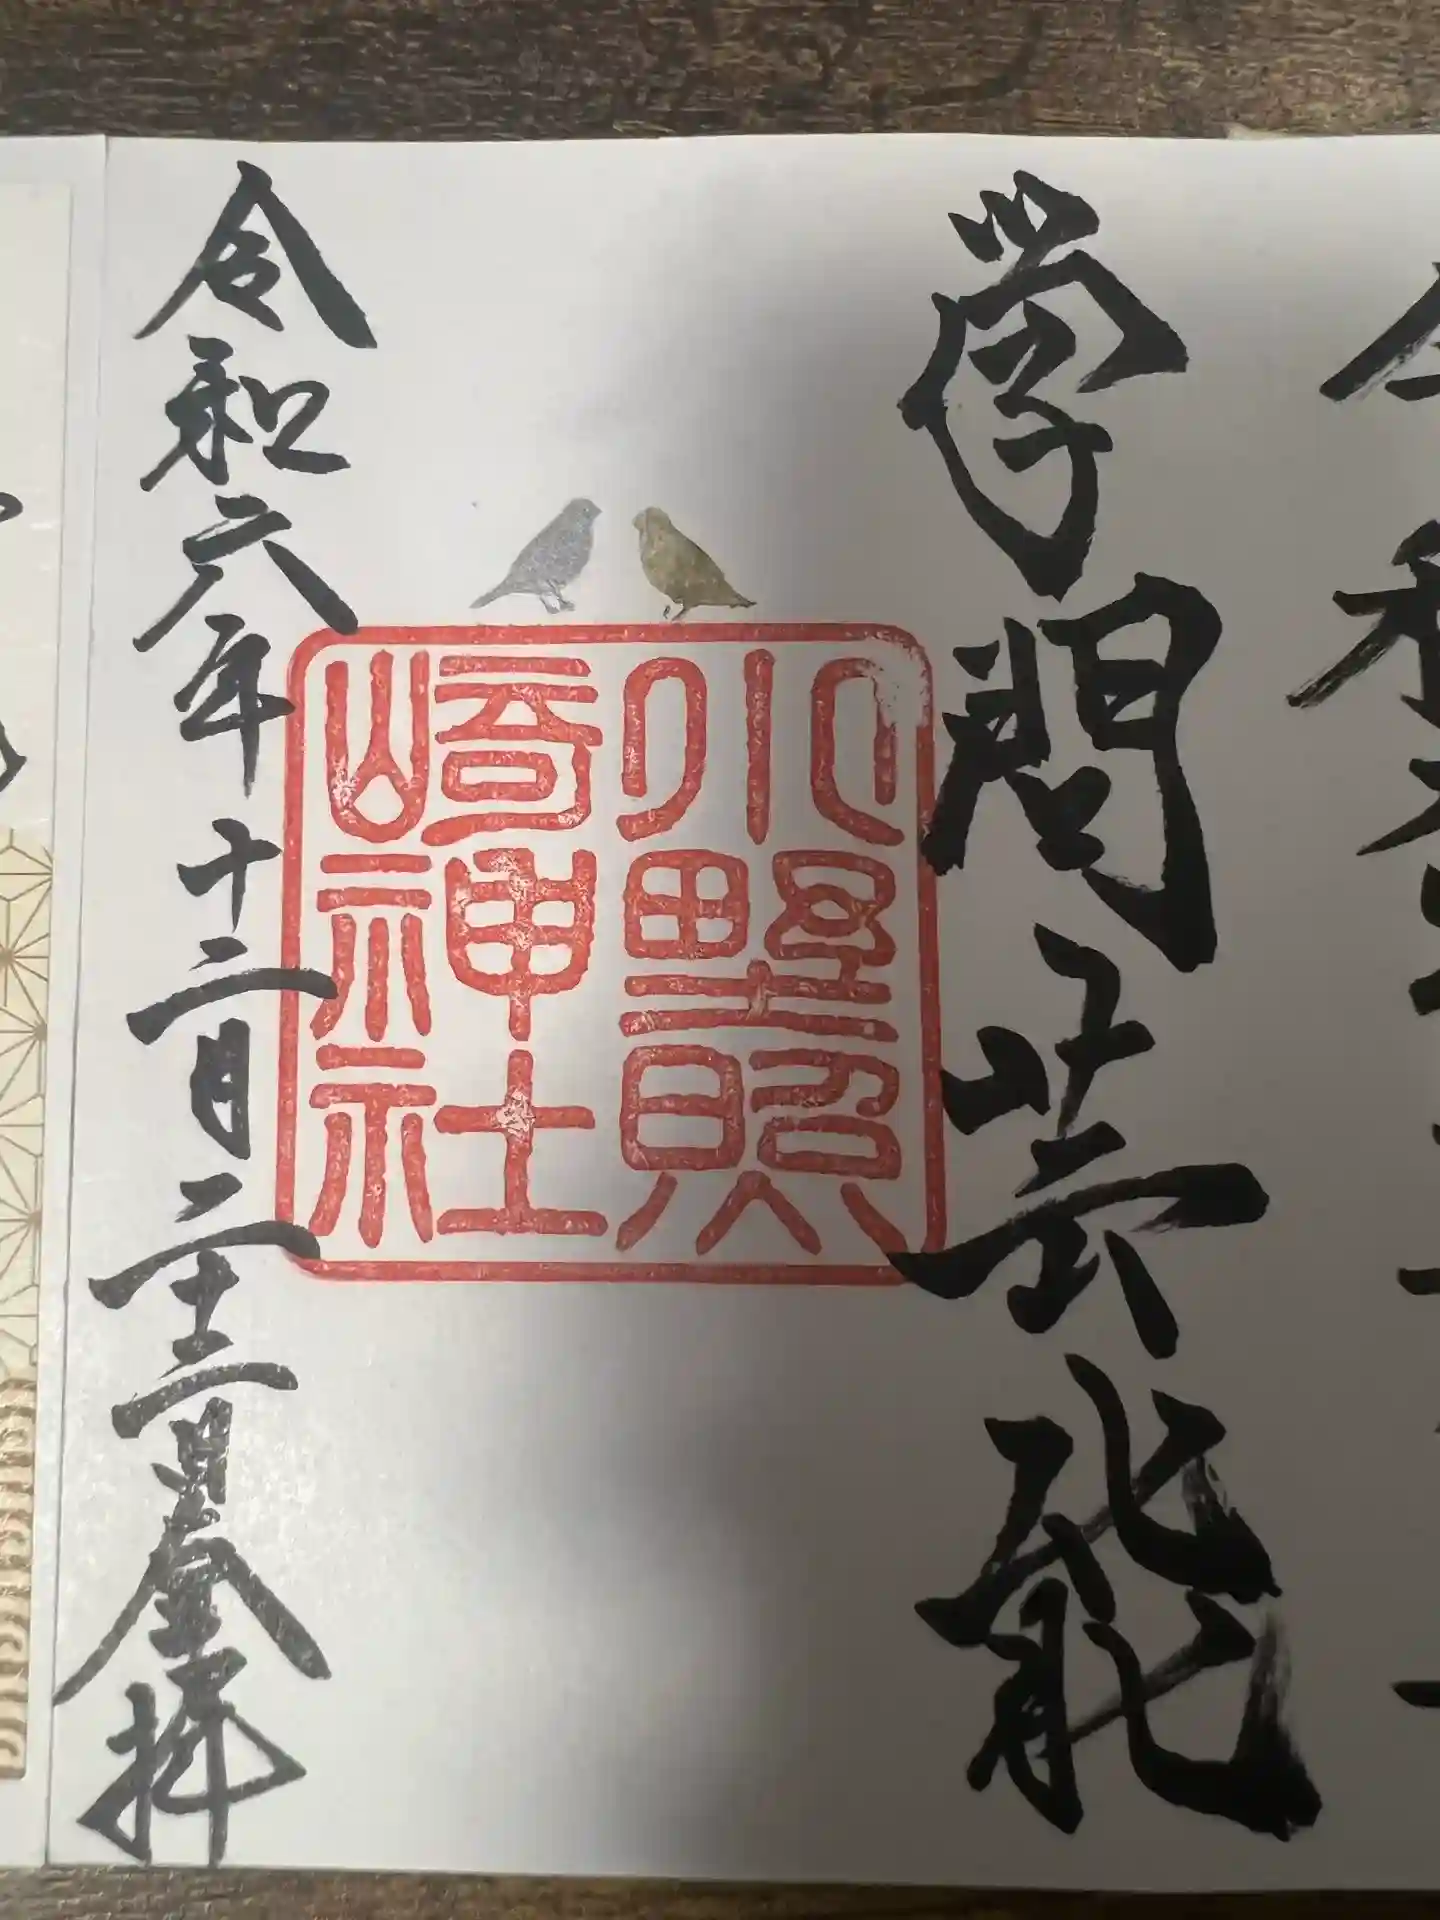 学問芸能
小野照
崎神社
令和六年十二月二十二日拝